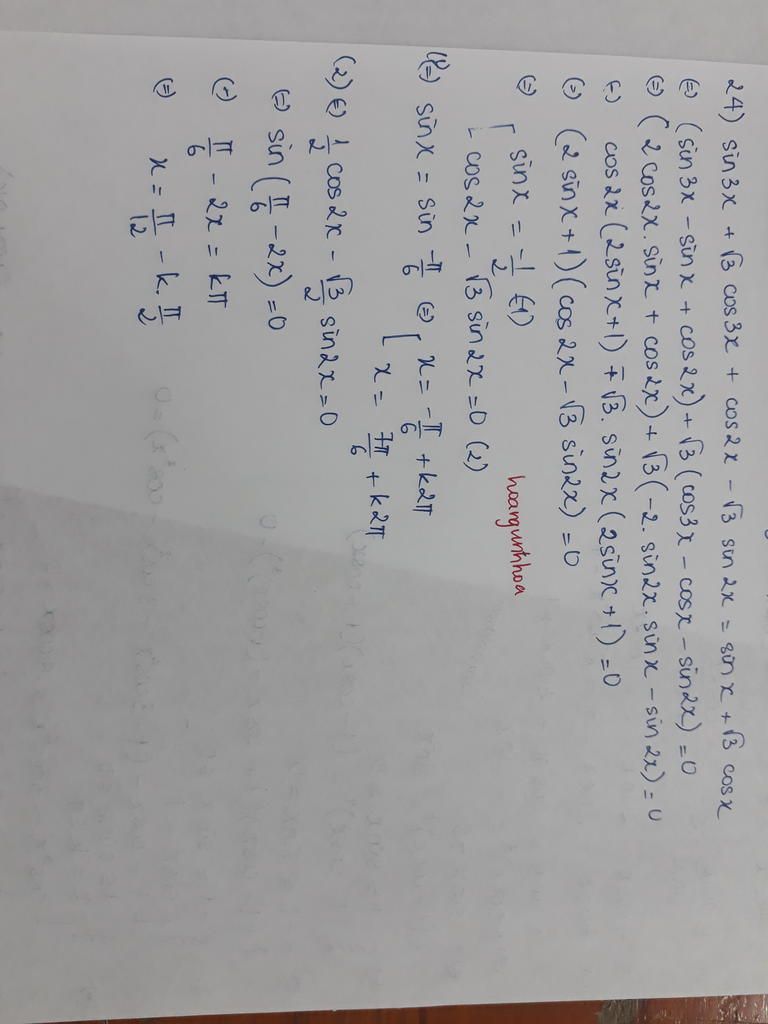 24) sin3x + √3 cos3x + cos2x - √3 sin2x = sinx + √3 cosx
(=) (sin3x - sinx + cos2x) + √3 (cos3x - cosx - sin2x) = 0
(=) (2cos2x.sinx + cos2x) + √3 (-2.sin2x.sinx - sin2x) = 0
(=) cos2x (2sinx+1) - √3. sin2x (2sinx+1) = 0
(=) (2sinx+1)(cos2x - √3 sin2x) = 0
(=) [ sinx = -1/2 (1)
[ cos2x - √3 sin2x = 0 (2)
hoangunhhoa
(1)(=) sinx = sin -π/6 (=) [ x = -π/6 + k2π
[ x = 7π/6 + k2π
(2) (=) 1/2 cos2x - √3/2 sin2x = 0
(=) sin(π/6 - 2x) = 0
(=) π/6 - 2x = kπ
(=) x = π/12 - k.π/2